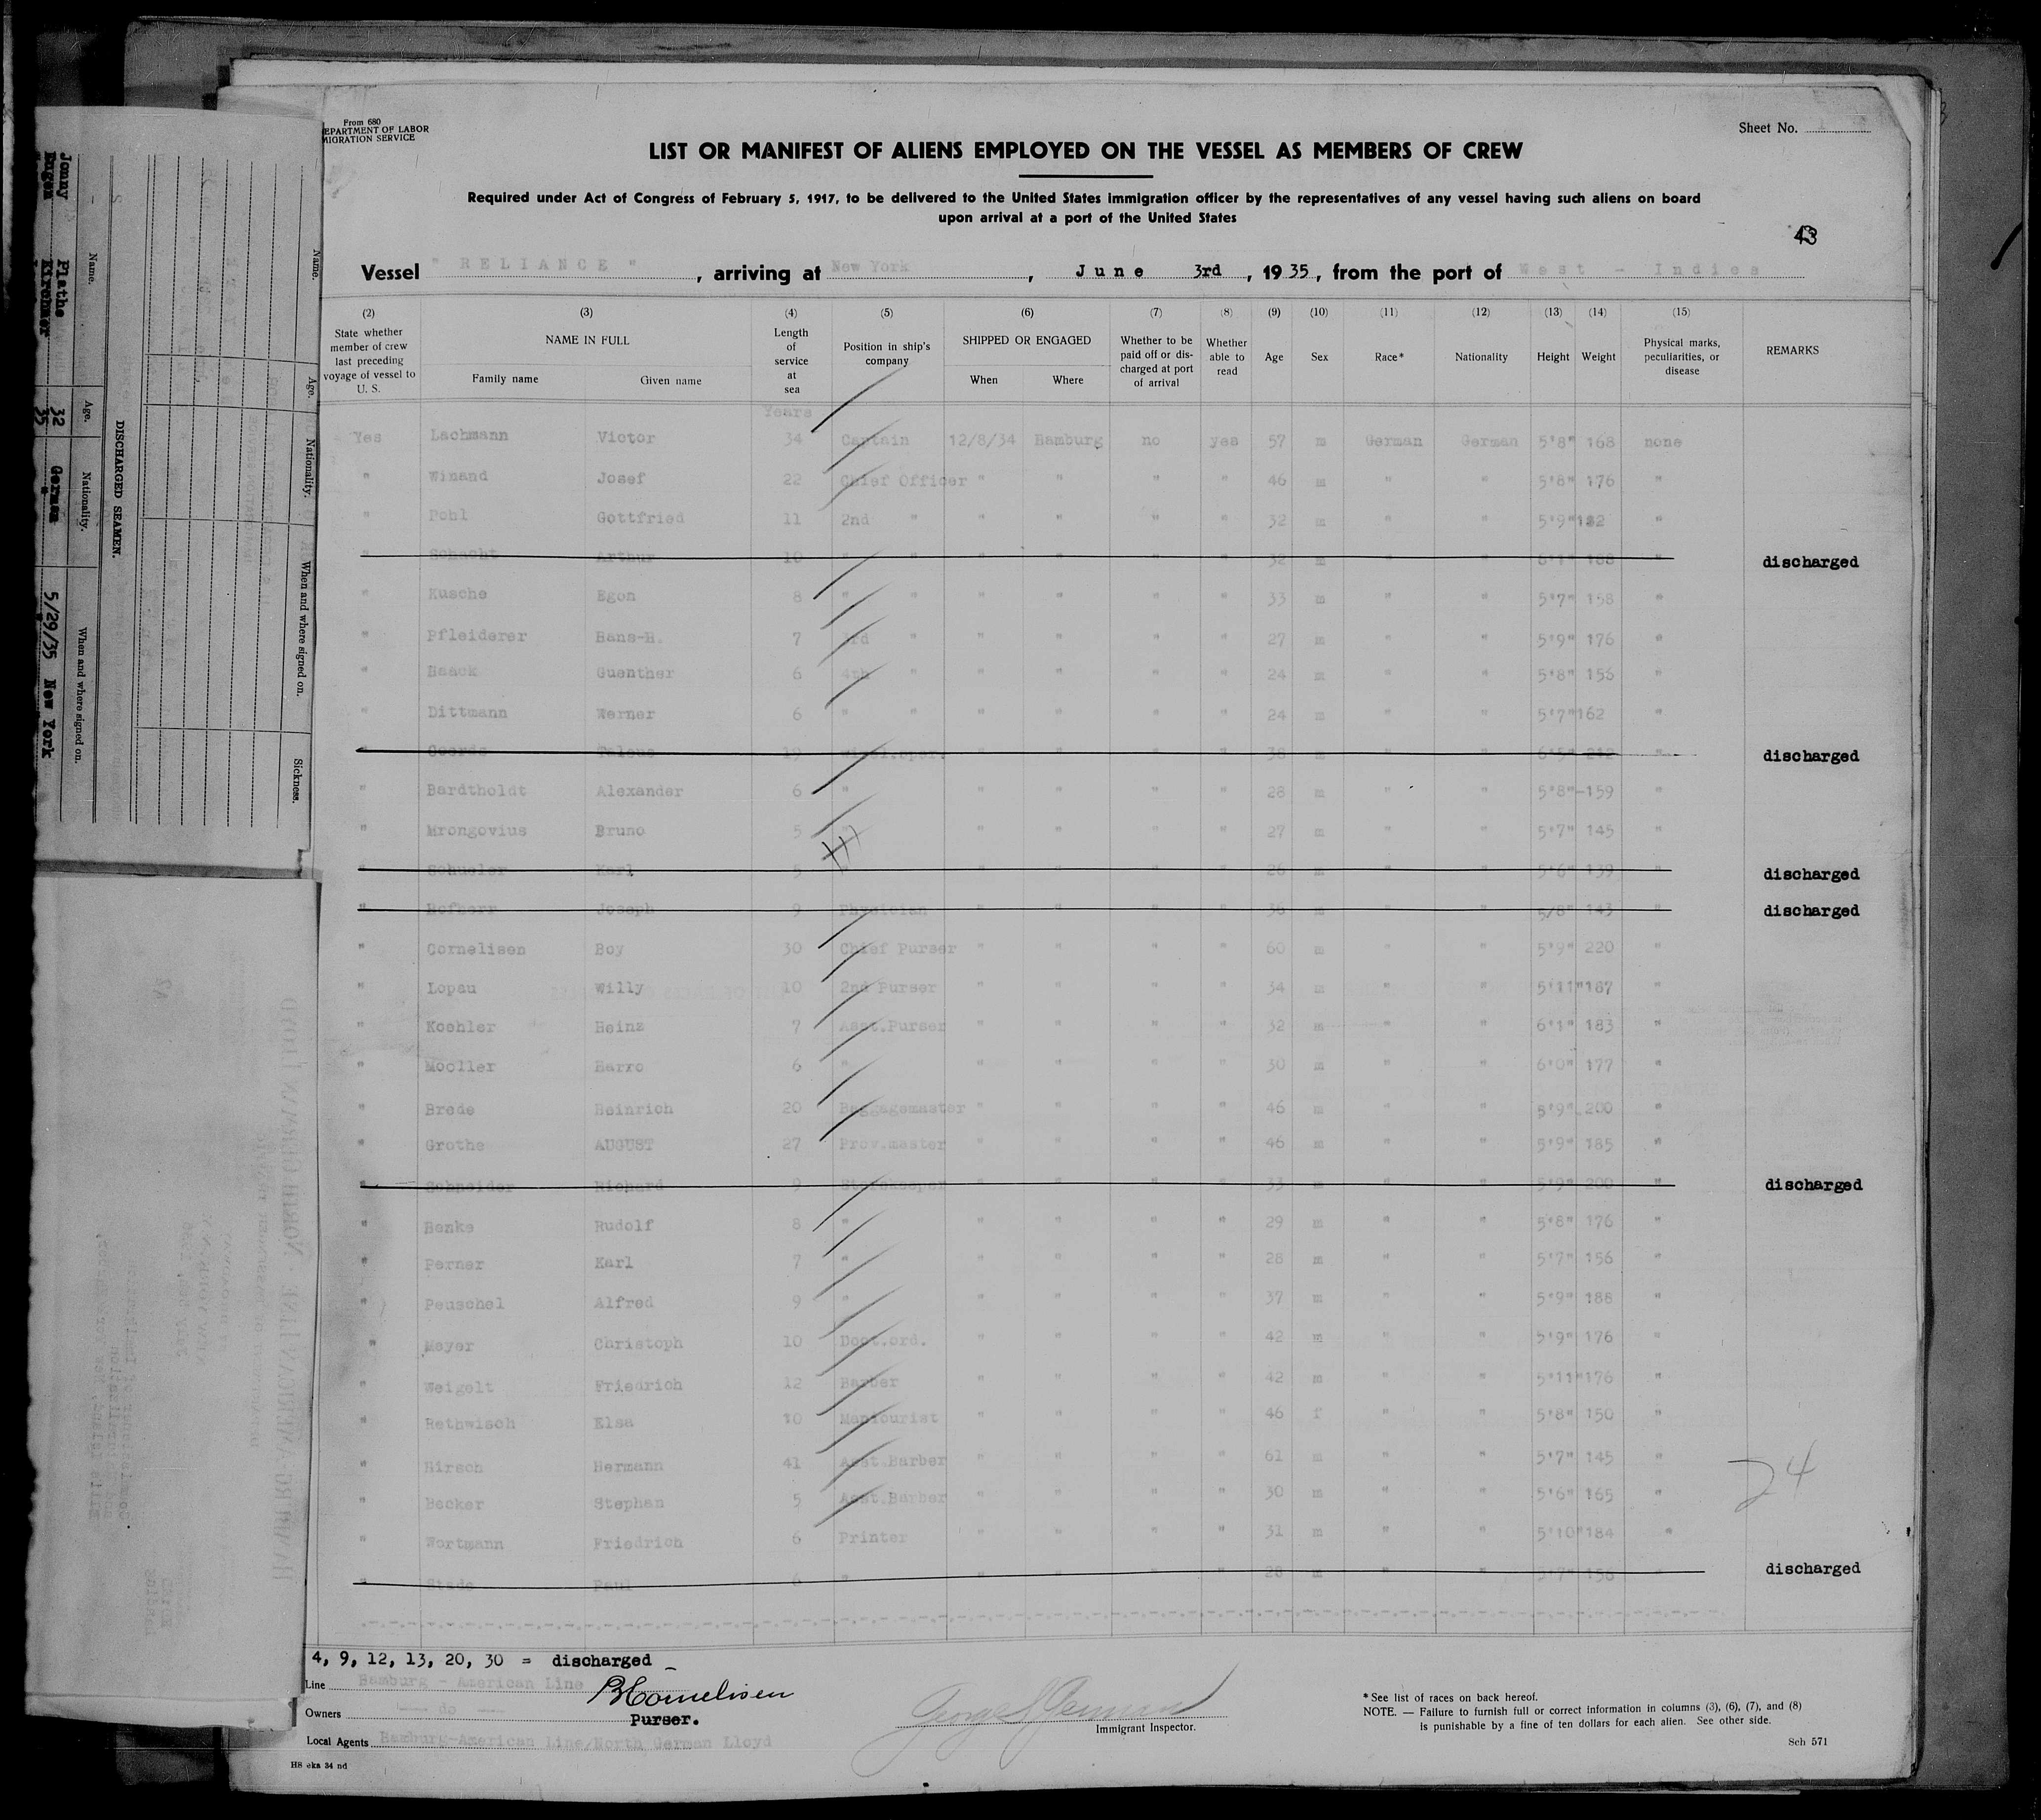 From 680
EPARTMENT OF LABOR
MIGRATION SERVICE
Sheet No. 1
LIST OR MANIFEST OF ALIENS EMPLOYED ON THE VESSEL AS MEMBERS OF CREW
Required under Act of Congress of February 5, 1917, to be delivered to the United States Immigration officer by the representatives of any vessel having such aliens on board
upon arrival at a port of the United States
43
Vessel " RELIANCE " , arriving at New York , June 3rd , 1935 , from the port of West - Indies
(2) State whether member of crew last preceding voyage of vessel to U. S. (3) NAME IN FULL Family name Given name (4) Length of service at sea (5) Position in ship's company (6) SHIPPED OR ENGAGED When Where (7) Whether to be paid off or dis- charged at port of arrival (8) Whether able to read (9) Age (10) Sex (11) Race* (12) Nationality (13) Height (14) Weight (15) Physical marks, peculiarities, or disease REMARKS
Years
Yes Lachmann Victor 34 Captain 12/8/34 Hamburg no yes 57 m German German 5'8" 168 none
" Winand Josef 22 Chief Officer " " " " 46 m " " 5'8" 176 "
" Pohl Gottfried 11 2nd " " " " " 32 m " " 5'9" 182 "
" Schacht Arthur 10 " " " " " " 32 m " " 6'1" 188 " discharged
" Kusche Egon 8 " " " " " " 33 m " " 5'7" 158 "
" Pfleiderer Hans-H. 7 3rd " " " " " 27 m " " 5'9" 176 "
" Haack Guenther 6 4th " " " " " 24 m " " 5'8" 156 "
" Dittmann Werner 6 " " " " " " 24 m " " 5'7" 162 "
" 19 " " " " 38 m " " 6'5" 212 " discharged
" Bardtholdt Alexander 6 " " " " " 28 m " " 5'8" 159 "
" Mrongovius Bruno 5 " " " " " 27 m " " 5'7" 145 "
" Schueler Karl 5 " " " " " 26 m " " 5'6" 139 " discharged
" Hofherr Joseph 9 Physician " " " " 36 m " " 5/8" 143 " discharged
" Cornelisen Boy 30 Chief Purser " " " " 60 m " " 5'9" 220 "
" Lopau Willy 10 2nd Purser " " " " 34 m " " 5'11" 187 "
" Koehler Heinz 7 Asst.Purser " " " " 32 m " " 6'1" 183 "
" Moeller Harro 6 " " " " " 30 m " " 6'0" 177 "
" Brede Heinrich 20 Baggagemaster " " " " 46 m " " 5'9" 200 "
" Grothe AUGUST 27 Prov.master " " " " 46 m " " 5'9" 185 "
" Schneider Richard 9 Storekeeper " " " " 33 m " " 5'9" 200 " discharged
" Benks Rudolf 8 " " " " " 29 m " " 5'8" 176 "
" Perner Karl 7 " " " " " 28 m " " 5'7" 156 "
" Peuschel Alfred 9 " " " " " 37 m " " 5'9" 188 "
" Meyer Christoph 10 Doct.ord. " " " " 42 m " " 5'9" 176 "
" Weigelt Friedrich 12 Barber " " " " 42 m " " 5'11" 176 "
" Rethwisch Elsa 10 Manicurist " " " " 46 f " " 5'8" 150 "
" Hirsch Hermann 41 Asst.Barber " " " " 61 m " " 5'7" 145 "
" Becker Stephan 5 Asst.Barber " " " " 30 m " " 5'6" 165 "
" Wortmann Friedrich 6 Printer " " " " 31 m " " 5'10" 184 "
" Stade Paul 6 " " " " " 28 m " " 5'7" 156 " discharged
24
4, 9, 12, 13, 20, 30 = discharged
Line Hamburg - American Line
BCornelisen
Owners do
Purser.
Immigrant Inspector.
Local Agents Hamburg-American Line/North German Lloyd
* See list of races on back hereof.
NOTE. — Failure to furnish full or correct information in columns (3), (6), (7), and (8)
is punishable by a fine of ten dollars for each alien. See other side.
Sch 571
H8 eka 34 nd
DISCHARGED SEAMEN.
Name. Age. Nationality. When and where signed on.
Jonny Plathe 32 German 5/29/35 New York
Eugen Kirchner 35 "
Name. Age. Nationality. When and where signed on. Sickness.
HAMBURG-AMERICAN LINE · NORTH GERMAN LLOYD